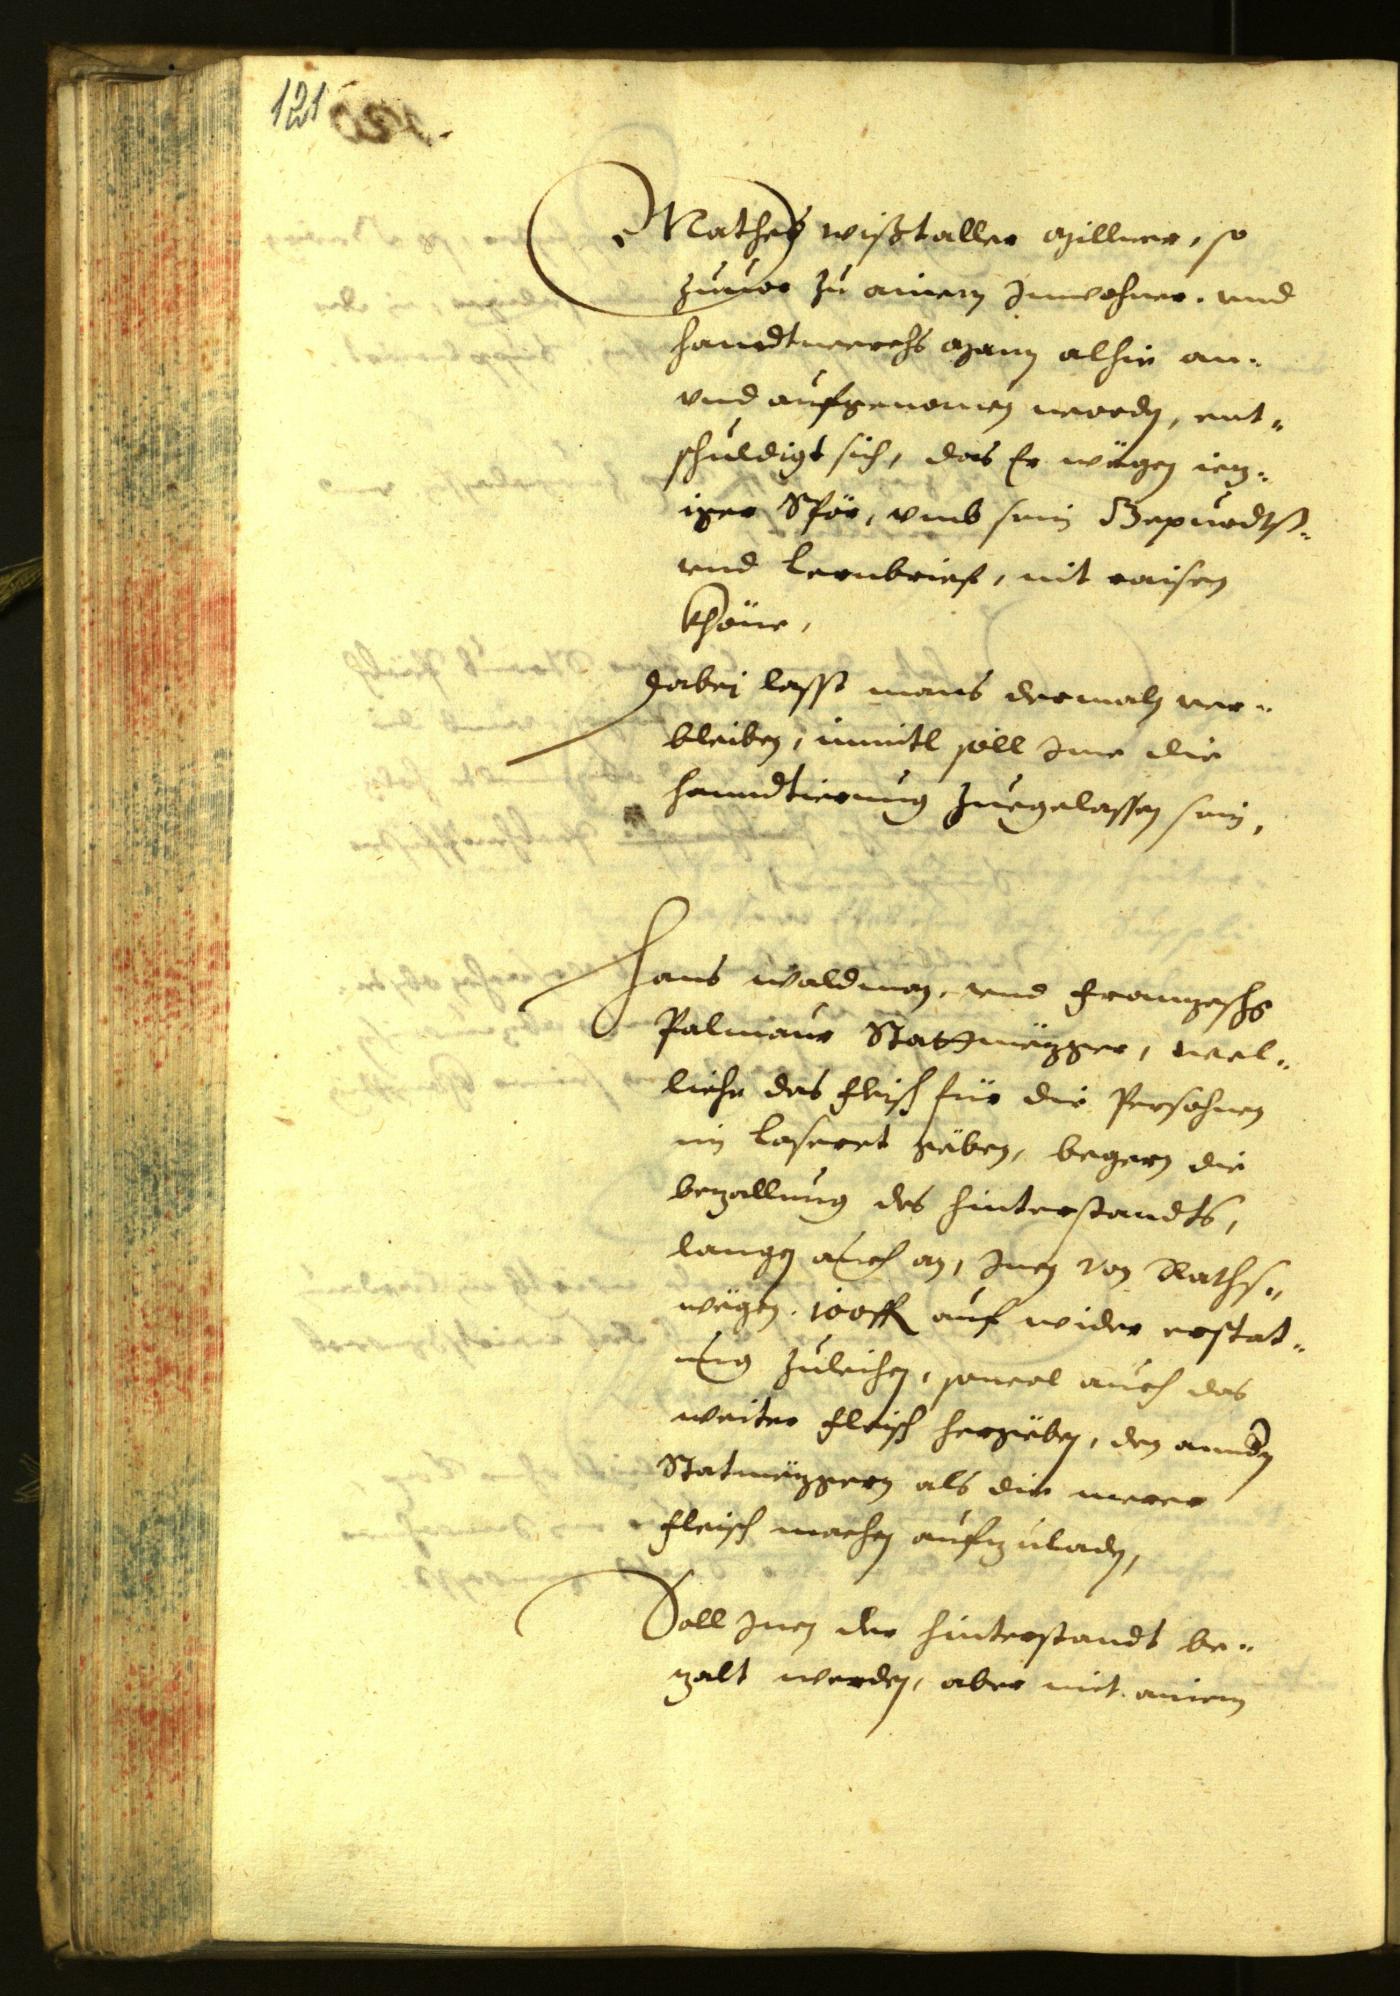 121
Mathes wißtaller Millner, so
zuuor zu ainem Inwohner. vnd
handtwerchs man alhie an-
vnd aufgenomen worden, ent-
schuldigt sich, das Er wegen iez-
iger Spör, vmb sein Gepurdts-
vnd Lernbrief, nit raisen
khöne,
dabej lasst mans dermaln ver-
bleiben, inmitl soll Ime die
hanndtierung zuegelassen sein,
Hans waldman, vnd Franzeschg
Palmaur Statmezger, wel-
liche das fleisch für die Persohnen
im Laseret geben, begern die
bezallung des hinterstandts,
langen auch an, Inen von Raths-
wegen. 100 fl auf wider erstat-
ung zuleihen, sowol auch das
weiter fleisch herzugeben, den andern
Statmezgern als die merer
fleisch machen aufzuladen,
Soll Inen der hinterstandt be-
zalt werden, aber mit ainem